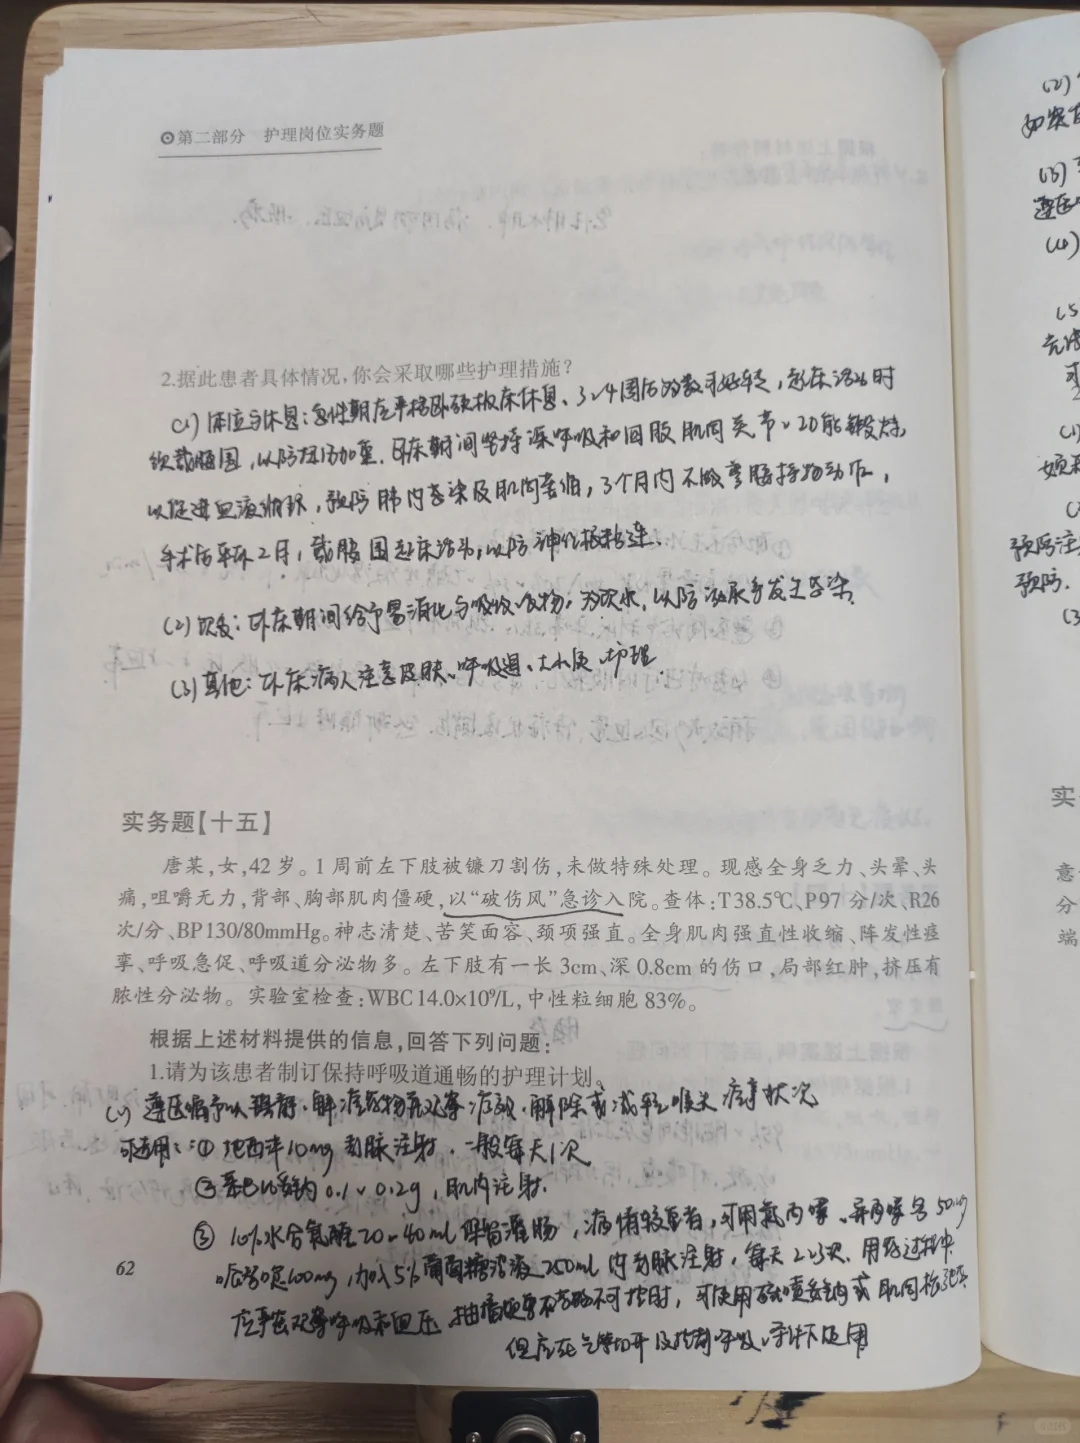 第二部分 护理岗位实务题
2.据此患者具体情况,你会采取哪些护理措施?
(1) 体位与休息:急性期应平格卧硬板床休息、3~4周后多数可好转,起床活动时
须戴腰围,以防扭伤加重.卧床期间坚持深呼吸和四肢肌肉关节功能锻炼,
以促进血液循环,预防肺内感染及肌肉萎缩,3个月内不做弯腰持物动作,
手术后平卧2月,戴腰围起床活动,以防神经根粘连.
(2) 饮食:卧床期间给予易消化与吸收食物,多饮水,以防泌尿系发生感染.
(3) 其他:卧床病人注意皮肤、呼吸道、大小便护理.
实务题【十五】
唐某,女,42岁。1周前左下肢被镰刀割伤,未做特殊处理。现感全身乏力、头晕、头
痛,咀嚼无力,背部、胸部肌肉僵硬,以“破伤风”急诊入院。查体:T38.5℃、P97分/次、R26
次/分、BP130/80mmHg。神志清楚、苦笑面容、颈项强直。全身肌肉强直性收缩、阵发性痉
挛、呼吸急促、呼吸道分泌物多。左下肢有一长3cm、深0.8cm的伤口,局部红肿,挤压有
脓性分泌物。实验室检查:WBC14.0×10⁹/L,中性粒细胞83%。
根据上述材料提供的信息,回答下列问题:
1.请为该患者制订保持呼吸道通畅的护理计划。
(1) 遵医嘱予以镇静、解痉药物并观察疗效,解除或减轻喉头痉挛状况
可适用:①地西泮10mg 静脉注射,一般每天1次
② 苯巴比妥钠0.1~0.2g,肌内注射.
③ 10%水合氯醛20~40mL保留灌肠,病情较重者,可用氯丙嗪、异丙嗪各50mg
哌替啶100mg,加入5%葡萄糖溶液250mL内静脉注射,每天2~3次.用药过程中
应严密观察呼吸和血压.抽搐频繁不能控制时,可使用硫喷妥钠或肌肉松弛剂
但应在气管切开及控制呼吸条件下使用
62